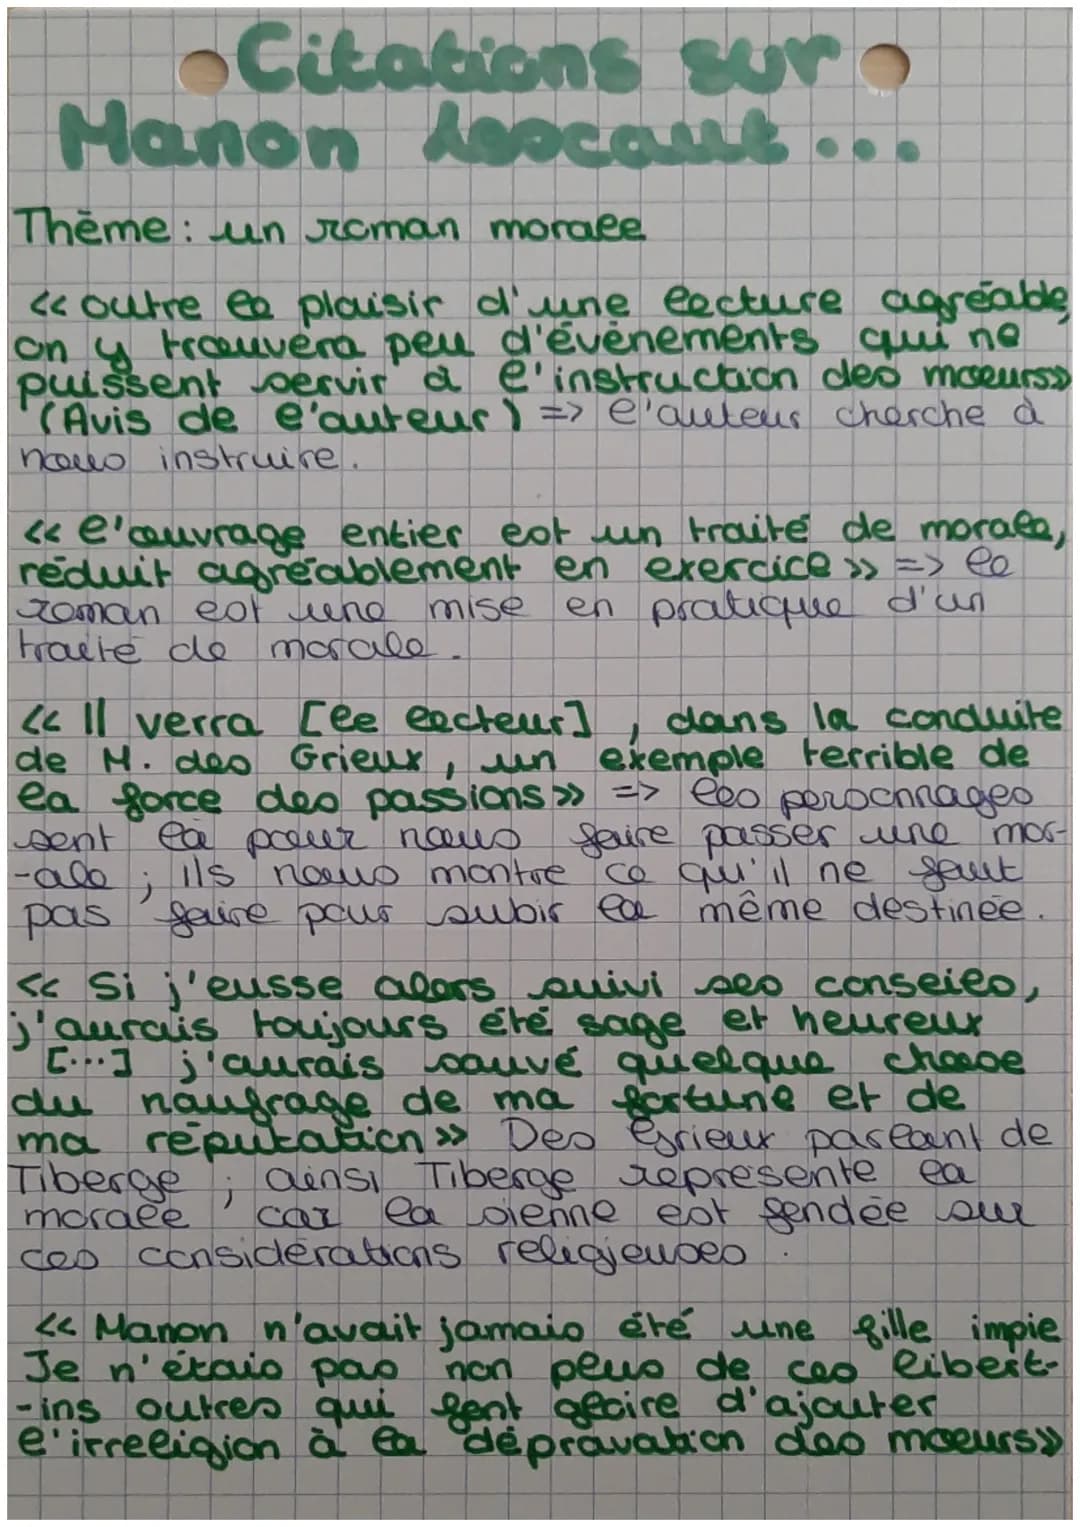 Citations sur
Manon Lescaut...
Thème : un roman morale
<< outre le plaisir d'une lecture agréable,
on y trouvera peu d'évènements qui ne
puissent servir à l'instruction des moeurs>>
(Avis de l'auteur) => l'auteur cherche à
nous instruire.
<< l'ouvrage entier est un traité de morale,
réduit agréablement en exercice >> => le
roman est une mise en pratique d'un
traité de morale.
<< Il verra [le lecteur], dans la conduite
de M. des Grieux, un exemple terrible de
la force des passions >> => les personnages
sont là pour nous faire passer une mor-
-ale ; ils nous montre ce qu'il ne faut
pas faire pour subir la même destinée.
<< Si j'eusse alors suivi ses conseils,
j'aurais toujours été sage et heureux
[...] j'aurais sauvé quelque chose
du naufrage de ma fortune et de
ma réputation >> Des Grieux parlant de
Tiberge ; ainsi Tiberge représente la
morale car la sienne est fondée sur
ces considérations religieuses.
<< Manon n'avait jamais été une fille impie
Je n'étais pas non plus de ces libert-
-ins outres qui font gloire d'ajouter
l'irreligion à la dépravation des moeurs>>